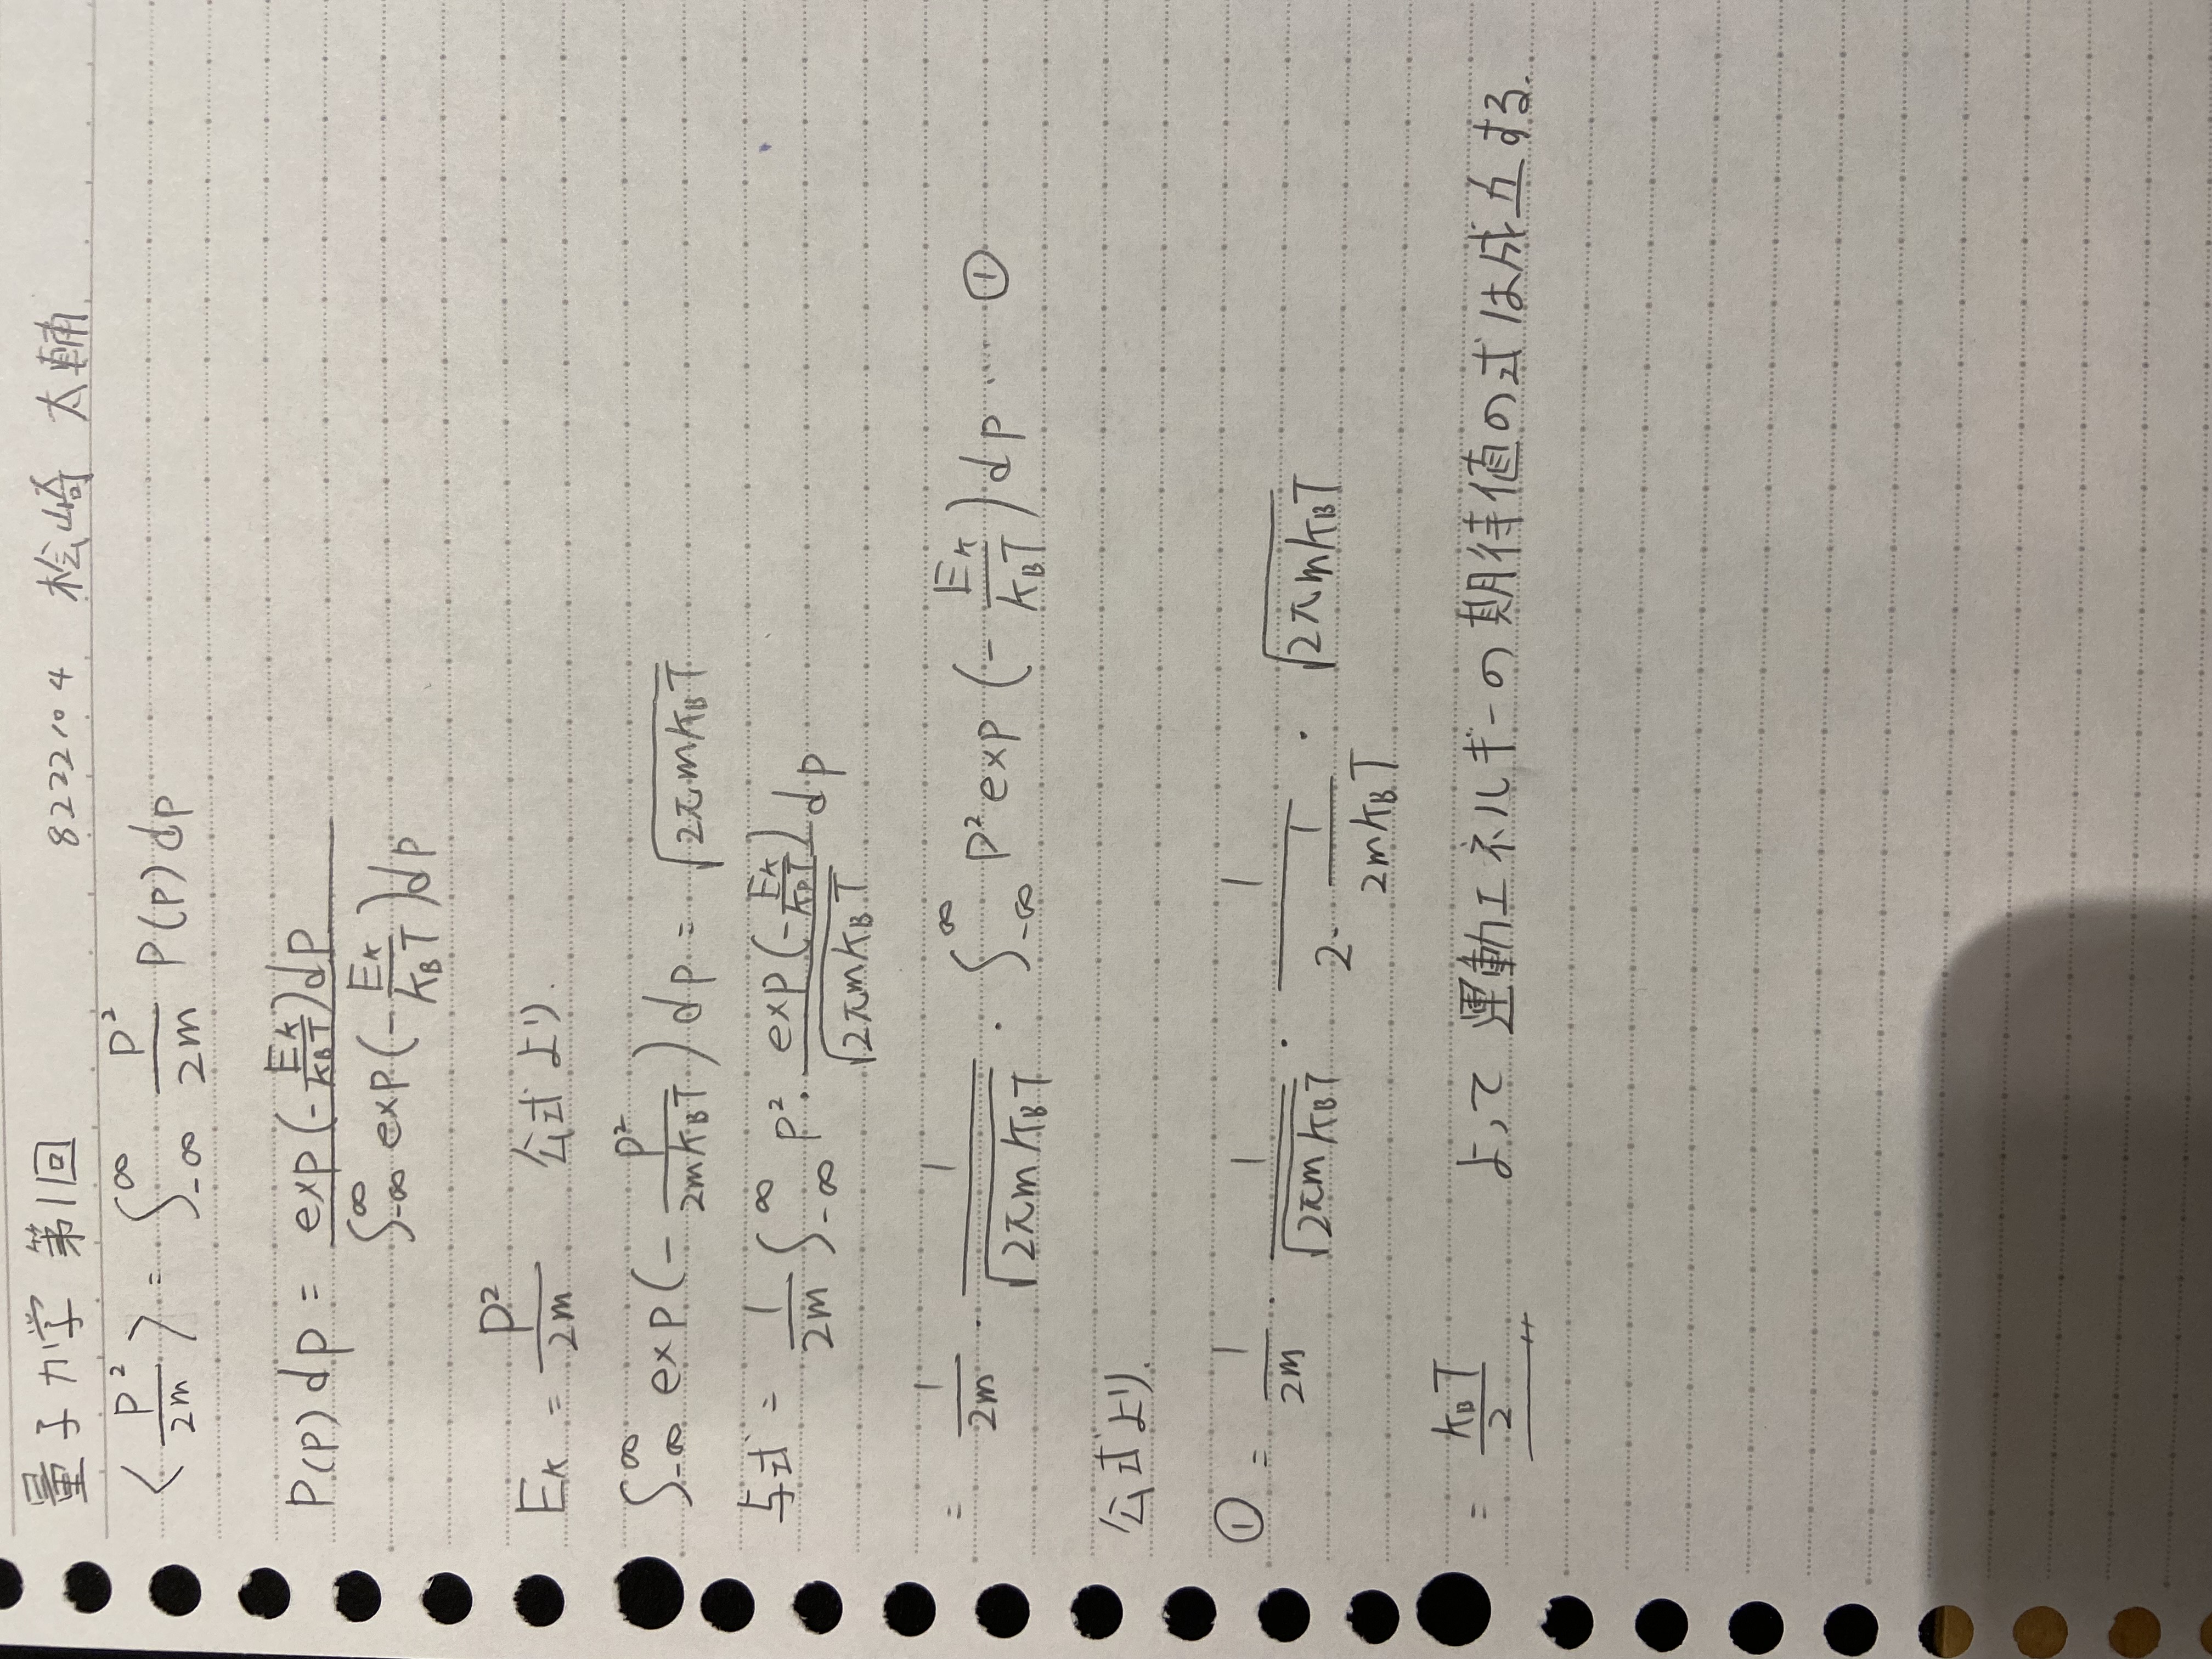 量子力学 第1回 8222104 桧崎 太輔
⟨ P²/2m ⟩ = ∫_{-∞}^{∞} P²/2m P(p) dp
P(p) dp = exp(-E_K/K_BT) dp / ∫_{-∞}^{∞} exp(-E_K/K_BT) dp
E_K = P²/2m 公式より.
∫_{-∞}^{∞} exp(-P²/2mK_BT) dp = √(2πmK_BT)
与式 = 1/2m ∫_{-∞}^{∞} P² · exp(-E_K/K_BT)/√(2πmK_BT) dp
= 1/2m · 1/√(2πmK_BT) · ∫_{-∞}^{∞} P² exp(-E_K/K_BT) dp … ①
公式より.
① = 1/2m · 1/√(2πmK_BT) · 1/(2·1/(2mK_BT)) · √(2πmK_BT)
= K_BT/2 よって 運動エネルギーの期待値の式は成立する.